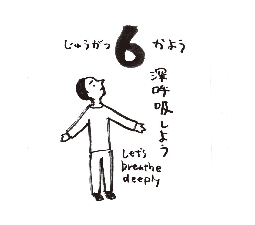 じゅうがつ 6 かよう
深呼吸しよう
Let's
breathe
deeply